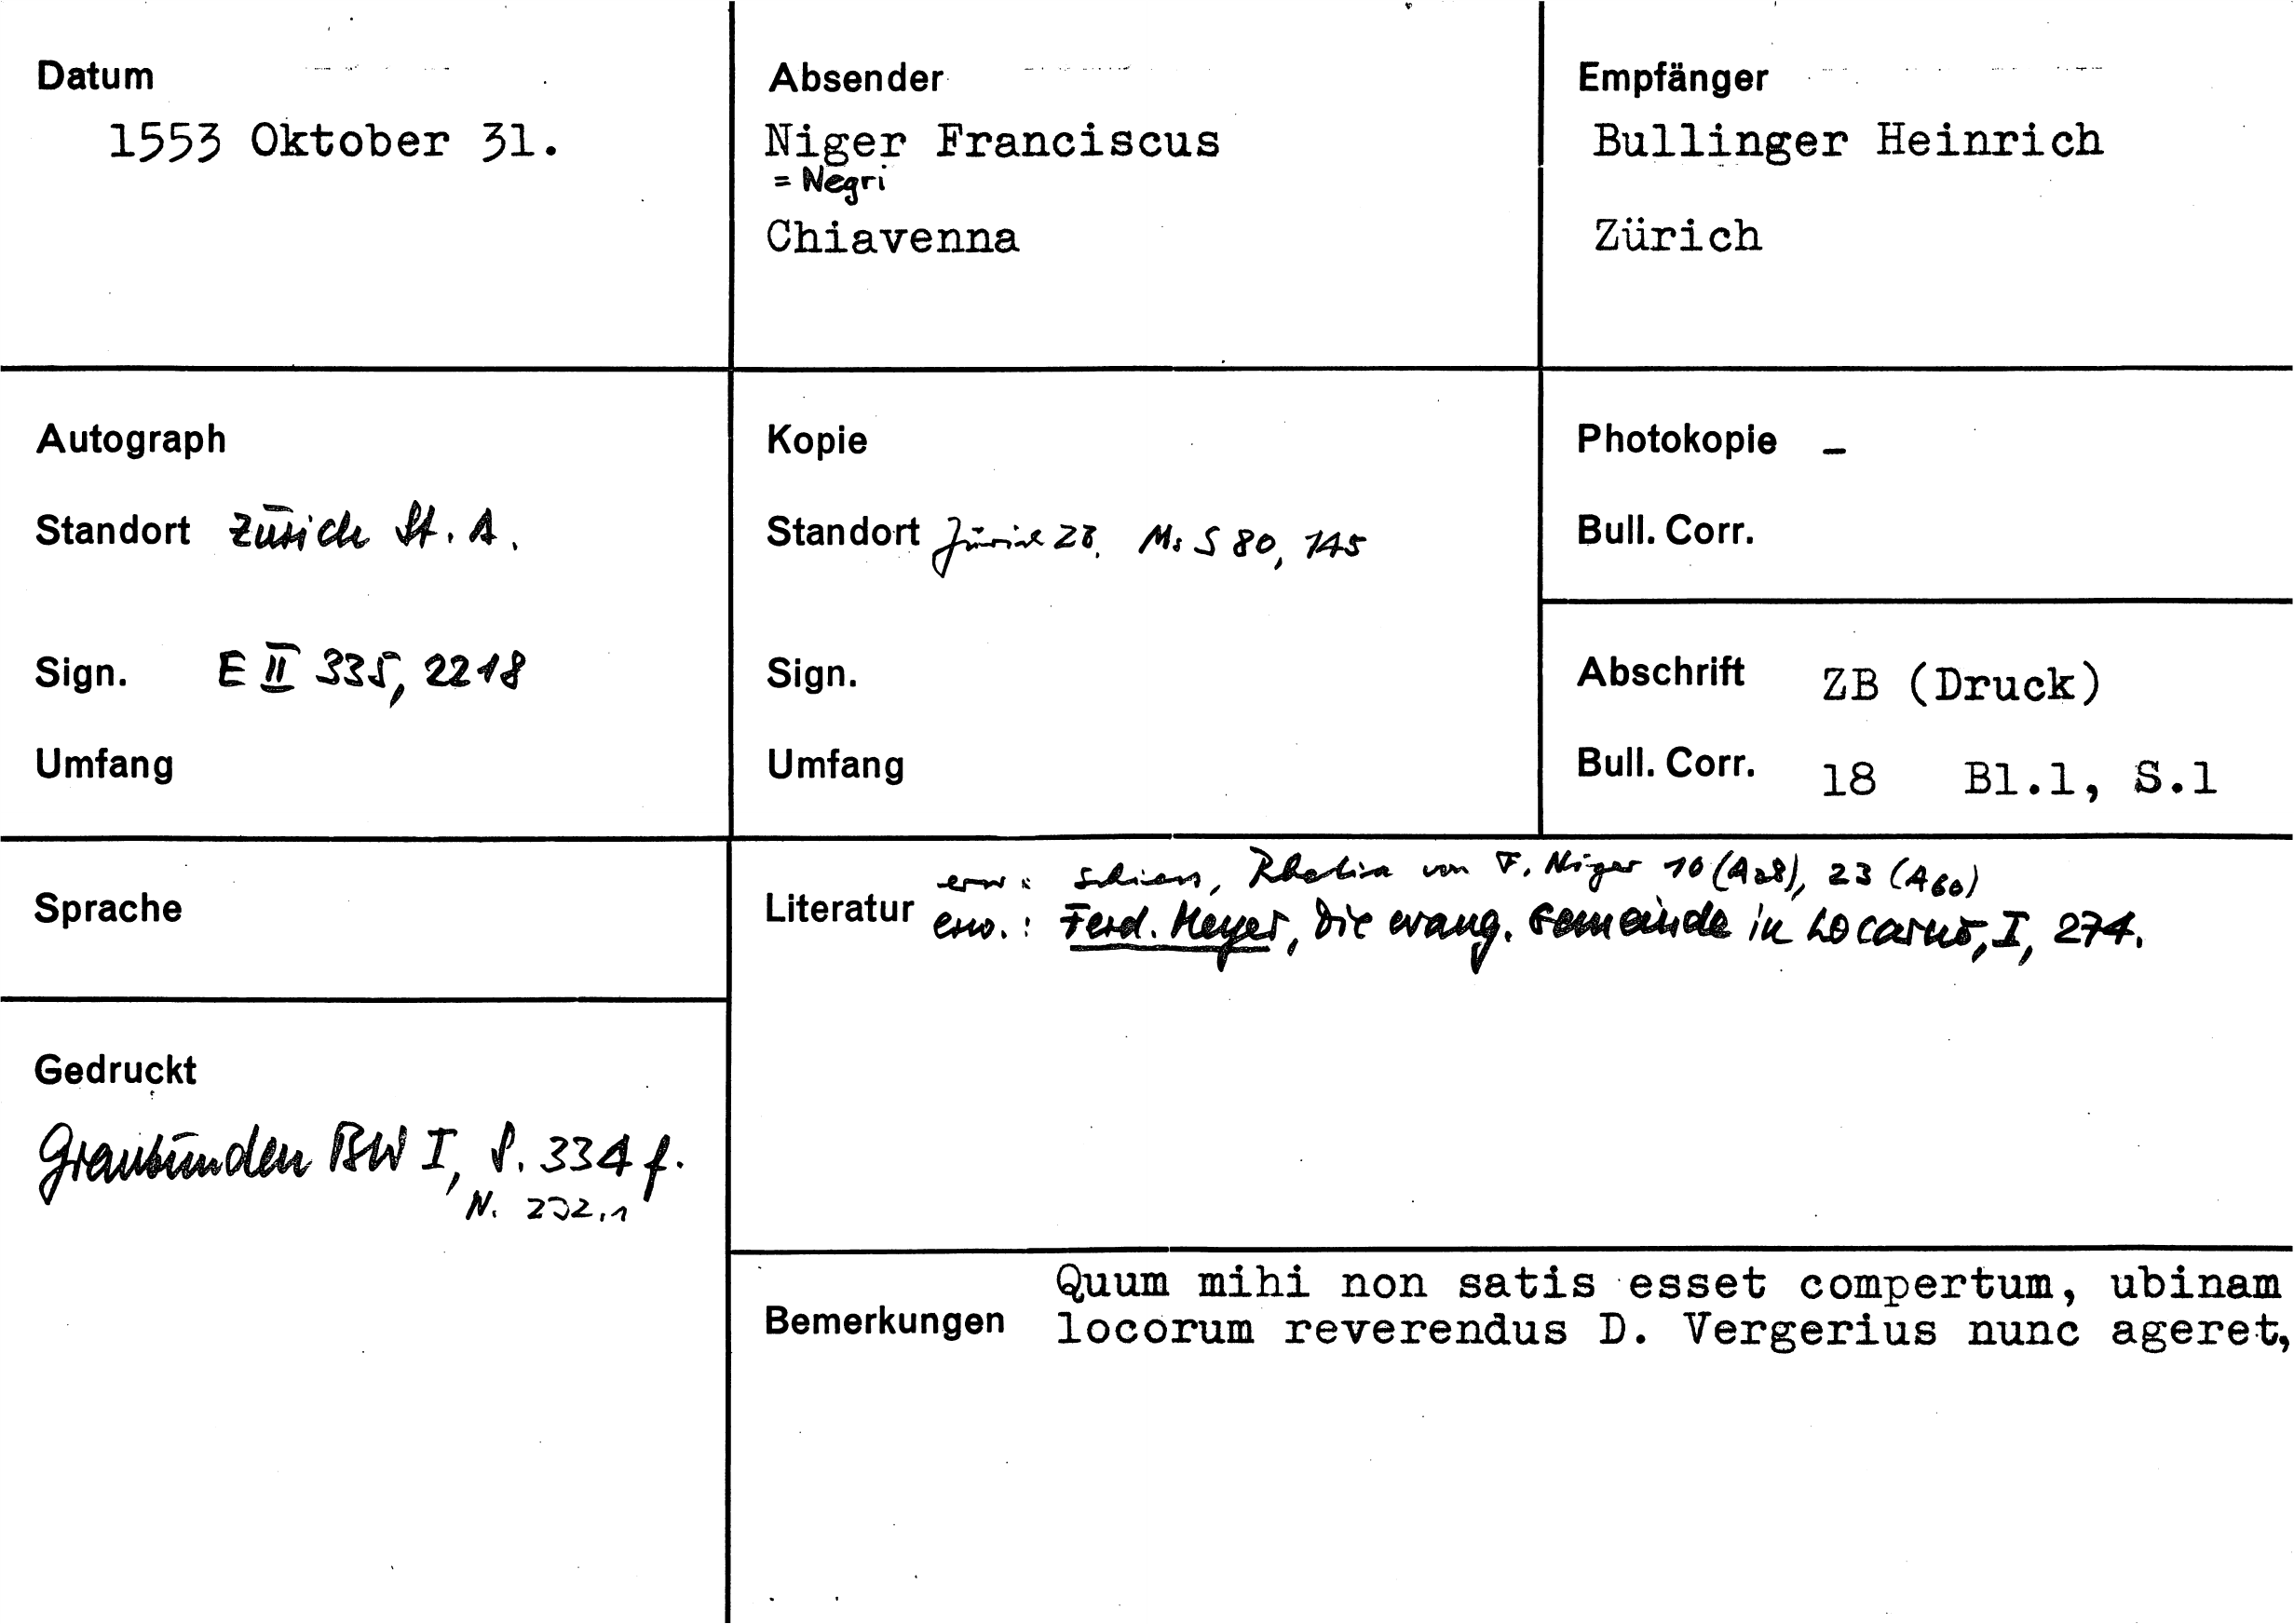 Datum
1553 Oktober 31.
Absender
Niger Franciscus
= Negri
Chiavenna
Empfänger
Bullinger Heinrich
Zürich
Autograph
Standort Zürich St. A.
Sign. E II 335, 2218
Umfang
Kopie
Standort Zürich ZB. Ms S 80, 145
Sign.
Umfang
Photokopie –
Bull. Corr.
Abschrift ZB (Druck)
Bull. Corr. 18 Bl.1, S.1
Sprache
Gedruckt
Graubünden BW I, S. 334 f.
N. 232.1
Literatur
erw: Schiess, Rhetia von F. Niger 10 (A28), 23 (A60)
erw.: Ferd. Meyer, Die evang. Gemeinde in Locarno, I, 274.
Bemerkungen
Quum mihi non satis esset compertum, ubinam
locorum reverendus D. Vergerius nunc ageret,